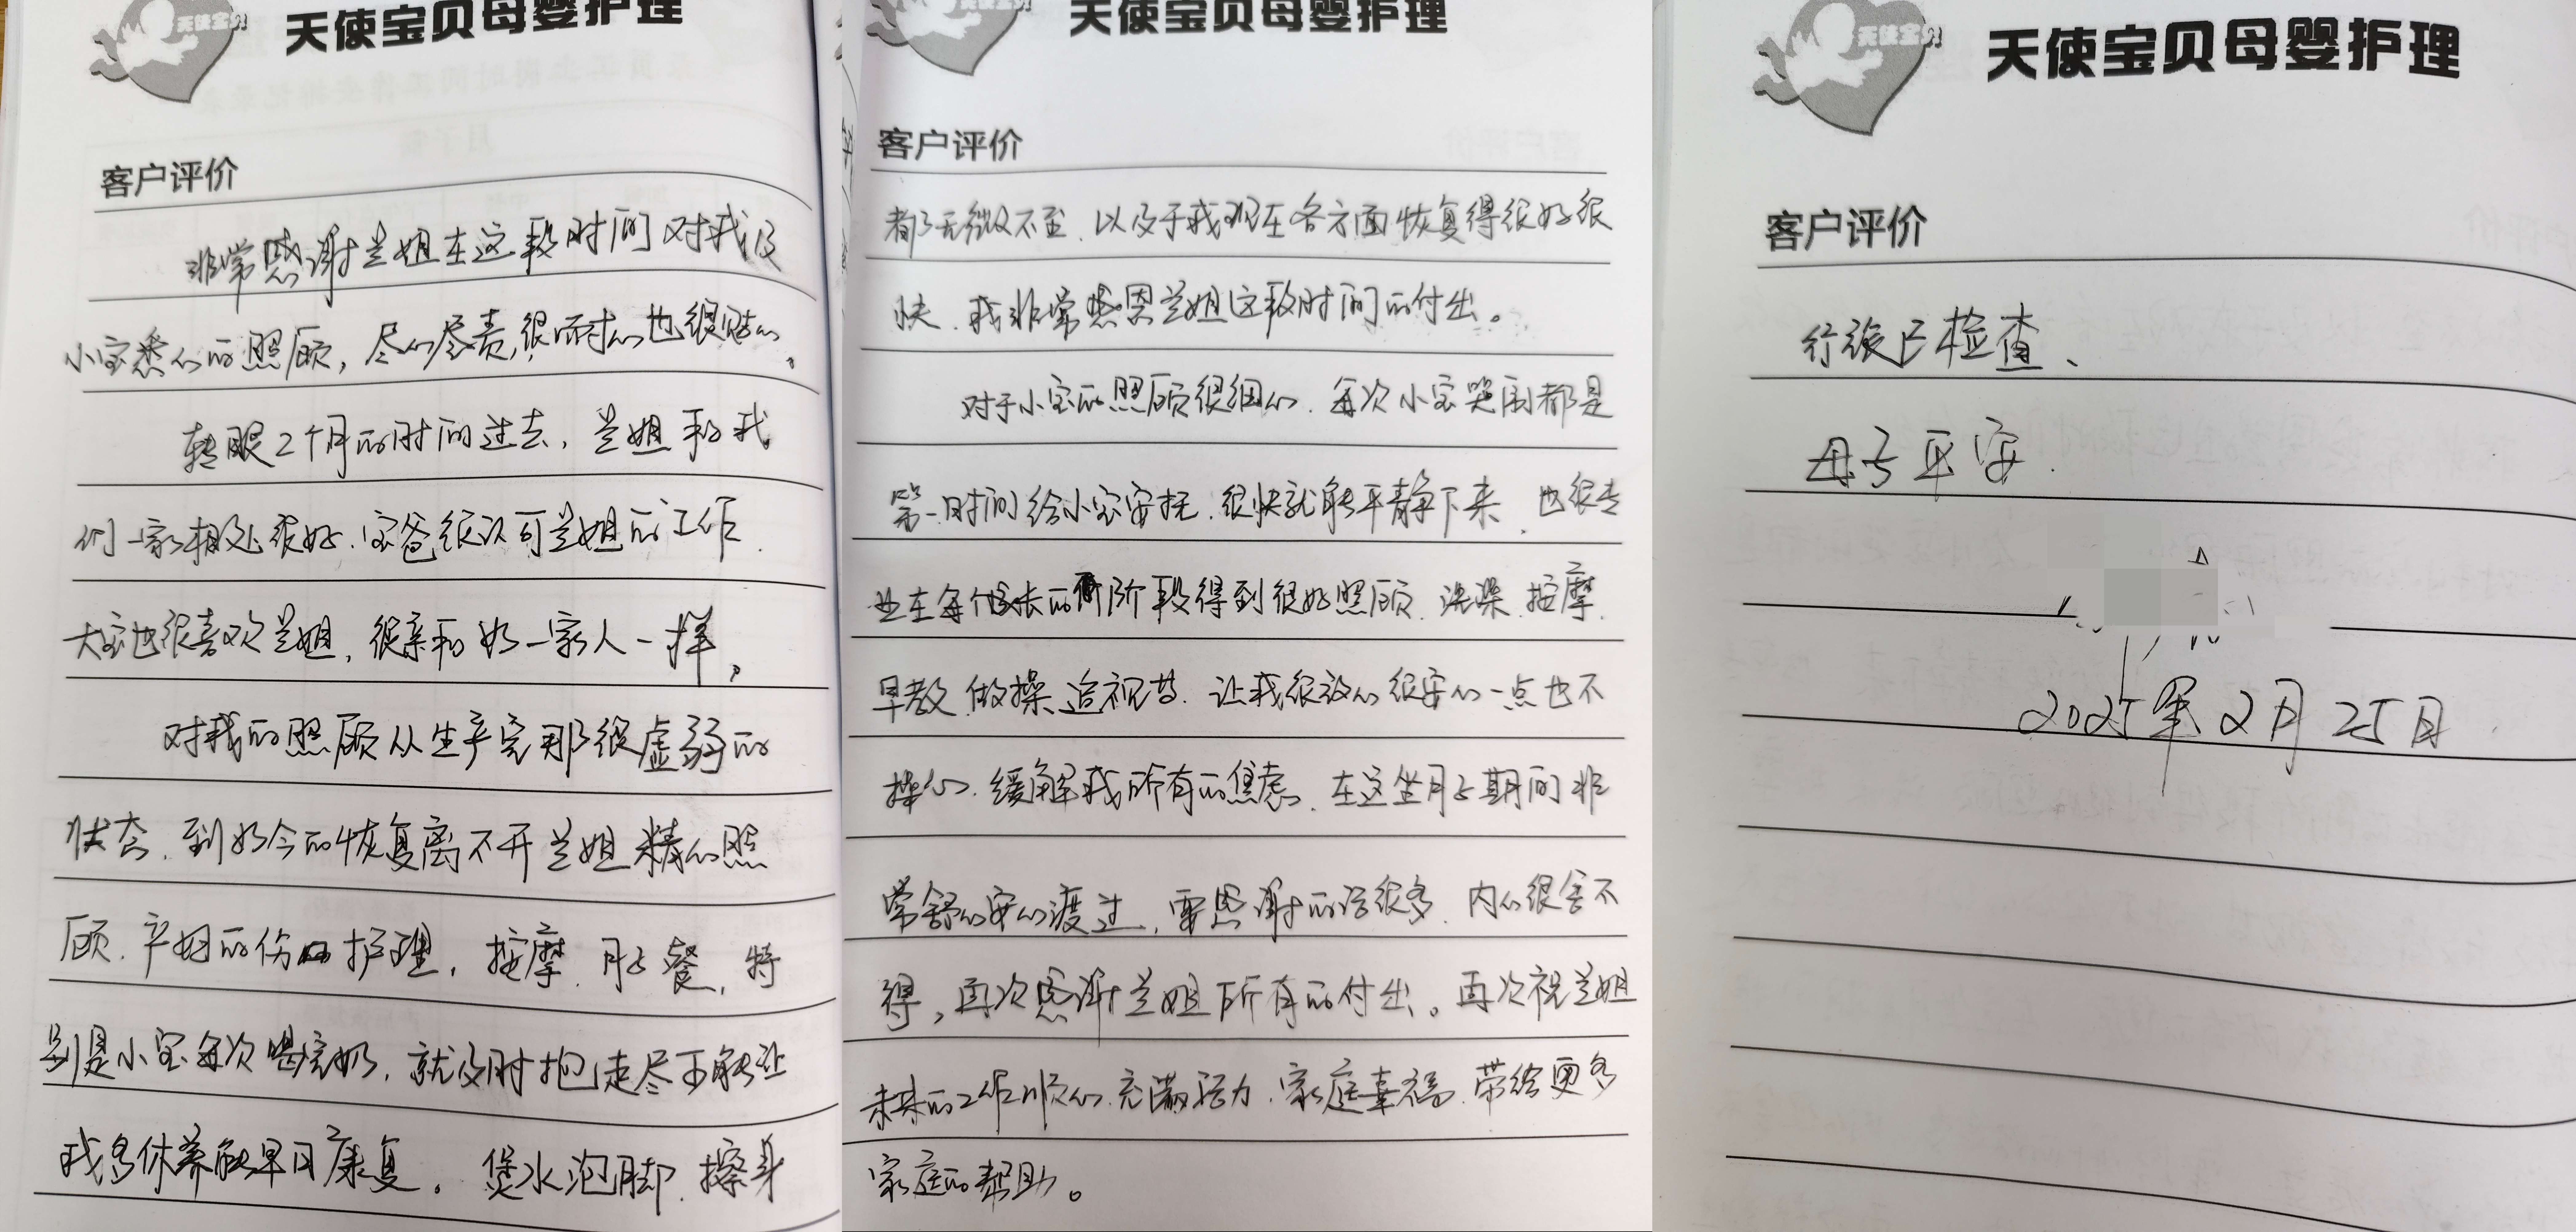 天使宝贝
天使宝贝母婴护理
客户评价
非常感谢兰姐在这段时间对我及
小宝悉心的照顾，尽心尽责，很耐心也很贴心。
转眼2个月的时间过去，兰姐和我
们一家相处很好、宝爸很认可兰姐的工作、
大宝也很喜欢兰姐，很亲和如一家人一样。
对我的照顾从生产完那很虚弱的
状态、到如今的恢复离不开兰姐精心照
顾、产妇的伤口护理，按摩、月子餐，特
别是小宝每次喝完奶，就及时抱走尽可能让
我多休养能早日康复。煲水泡脚、擦身
天使宝贝
天使宝贝母婴护理
客户评价
都无微不至、以及于我现在各方面恢复得很好很
快、我非常感恩兰姐这段时间的付出。
对于小宝的照顾很细心、每次小宝哭闹都是
第一时间给小宝安抚、很快就能平静下来、也很专
业在每个成长的阶段得到很好照顾、洗澡、按摩、
早教、做操、追视等、让我很放心很安心一点也不
操心、缓解我所有的焦虑、在这坐月子期间非
常舒心安心渡过，要感谢的话很多、内心很舍不
得，再次感谢兰姐所有的付出。再次祝兰姐
未来的工作顺心、充满活力、家庭幸福、带给更多
家庭的帮助。
天使宝贝
天使宝贝母婴护理
客户评价
行张已检查、
母子平安.
2025年2月25日